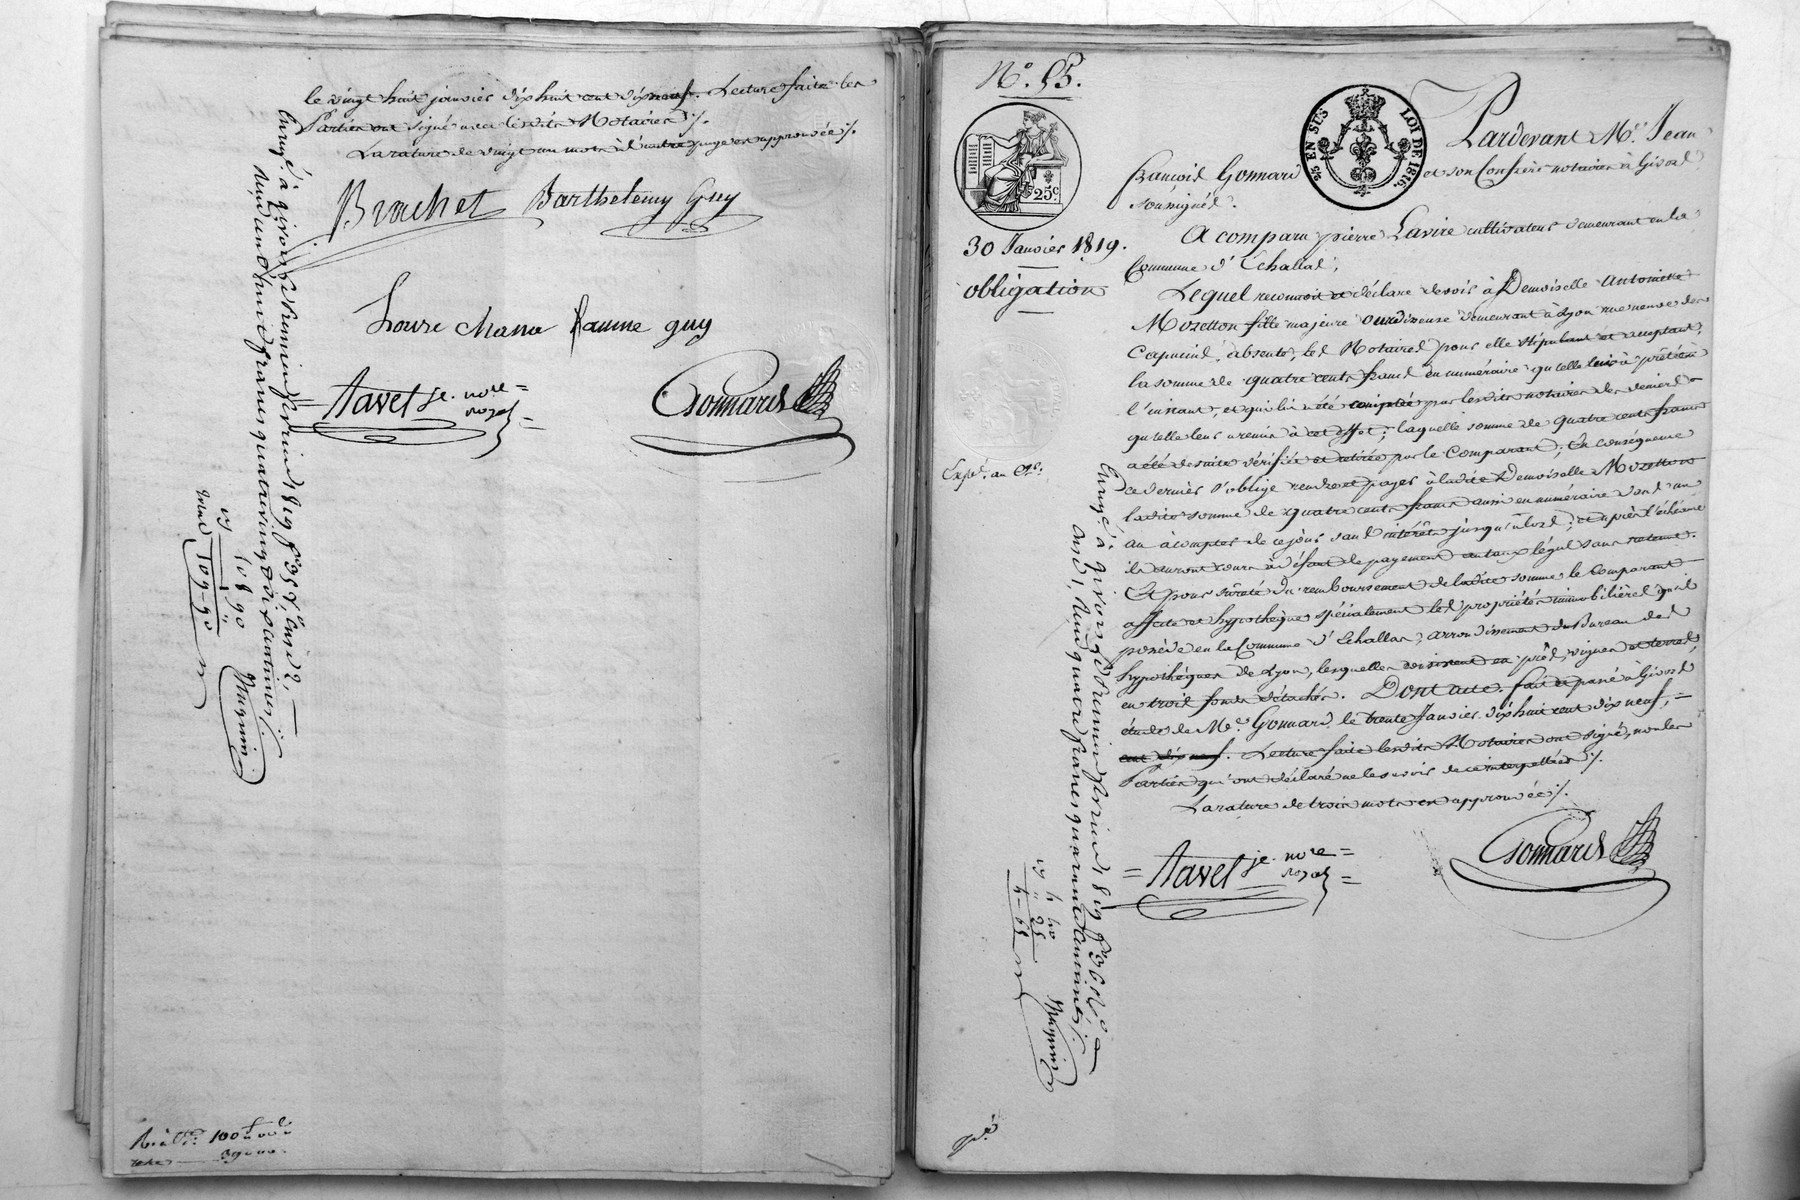 le vingt huit janvier dix huit cent dix neuf. Lecture faite les
Parties ont signé avec lesdits Notaires ./.
La rature de vingt un mots à l'autre page est approuvée ./.
Brachet Barthelemy Guy
guy
= Favel je. nore =
royal =
Gonnard
Enregé à givors le premier février 1819 fo 35 Vo Case 2,
Reçu cent huit francs quatre vingt dix centimes ./.
108 90
109-90
Magnin
No. 55.
25c.
25 EN SUS LOI DE 1816.
30 Janvier 1819.
obligation
Pardevant Me. Jean
François Gonnard et son Confrère notaires à Givors
soussignés.
A comparu pierre Lavire cultivateur demeurant en la
Commune d'Echallas;
Lequel reconnoit et déclare devoir à Demoiselle Antoinette
Mozetton fille majeure ourdisseuse demeurant à Lyon rue neuve des
Capucins, absente, les Notaires pour elle stipulant et acceptant,
la somme de quatre cents francs en numéraire qu'elle lui a prêtée à
l'instant, et qui lui a été comptée par lesdits notaires des deniers
qu'elle leur a remis à cet effet; laquelle somme de quatre cents francs
a été de suite vérifiée et retirée par le Comparant; En conséquence
ce dernier s'oblige rendre et payer à ladite Demoiselle Mozetton
ladite somme de quatre cents francs aussi en numéraire dans un
an à compter de ce jour sans intérêts jusqu'alors; et après l'échéance
ils auront cours à défaut de payement au taux légal sans retenue.
Et pour sûreté du remboursement de ladite somme le Comparant
affecte et hypothèque spécialement les propriétés immobilières qu'il
possède en la Commune d'Echallas, arrondissement du Bureau des
hypothèques de Lyon, lesquelles consistent en prés, vignes et terres,
en trois fonds détachés. Dont acte, fait et passé à Givors
étude de Me. Gonnard, le trente Janvier dix huit cent dix neuf, =
cent dix neuf. Lecture faite lesdits Notaires ont signé, non les
Parties qui ont déclaré ne le savoir de ce interpellées ./.
La rature de trois mots est approuvée ./.
= Favel je. nore =
royal =
Gonnard
Enregé à givors le premier février 1819 fo 36
Reçu quatre francs quarante centimes ./.
4 40
Magnin